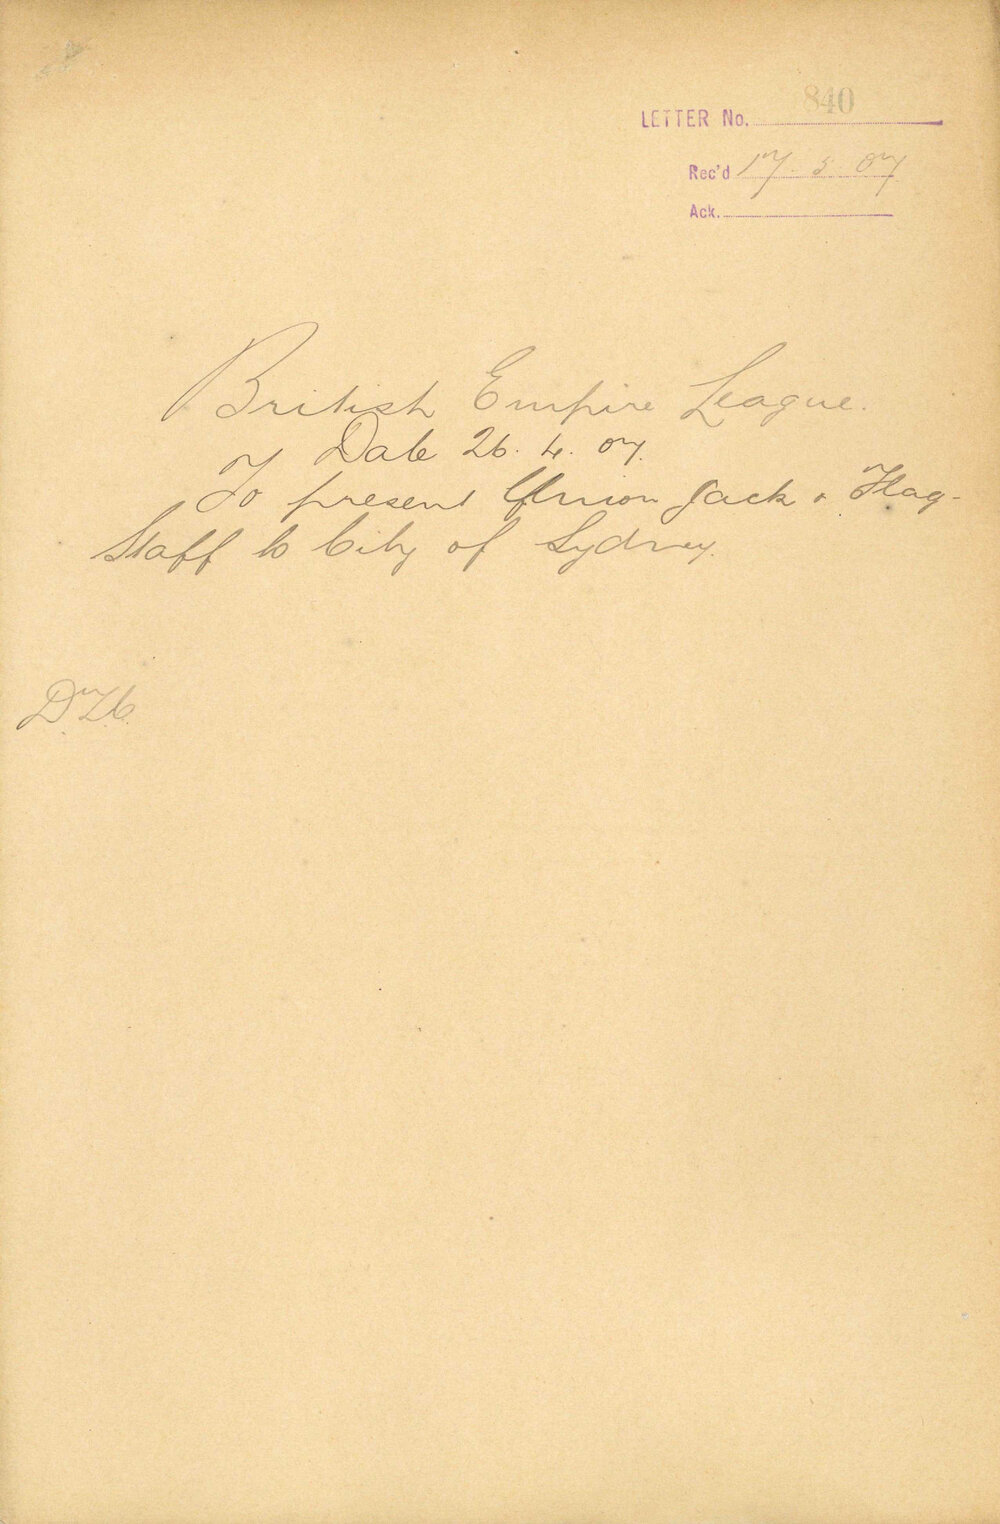 LETTER No. 840
Rec'd 17. 5 07
Ack.
British Empire League.
Date 26. 4. 07.
To present Union Jack & Flag-
Staff to City of Sydney.